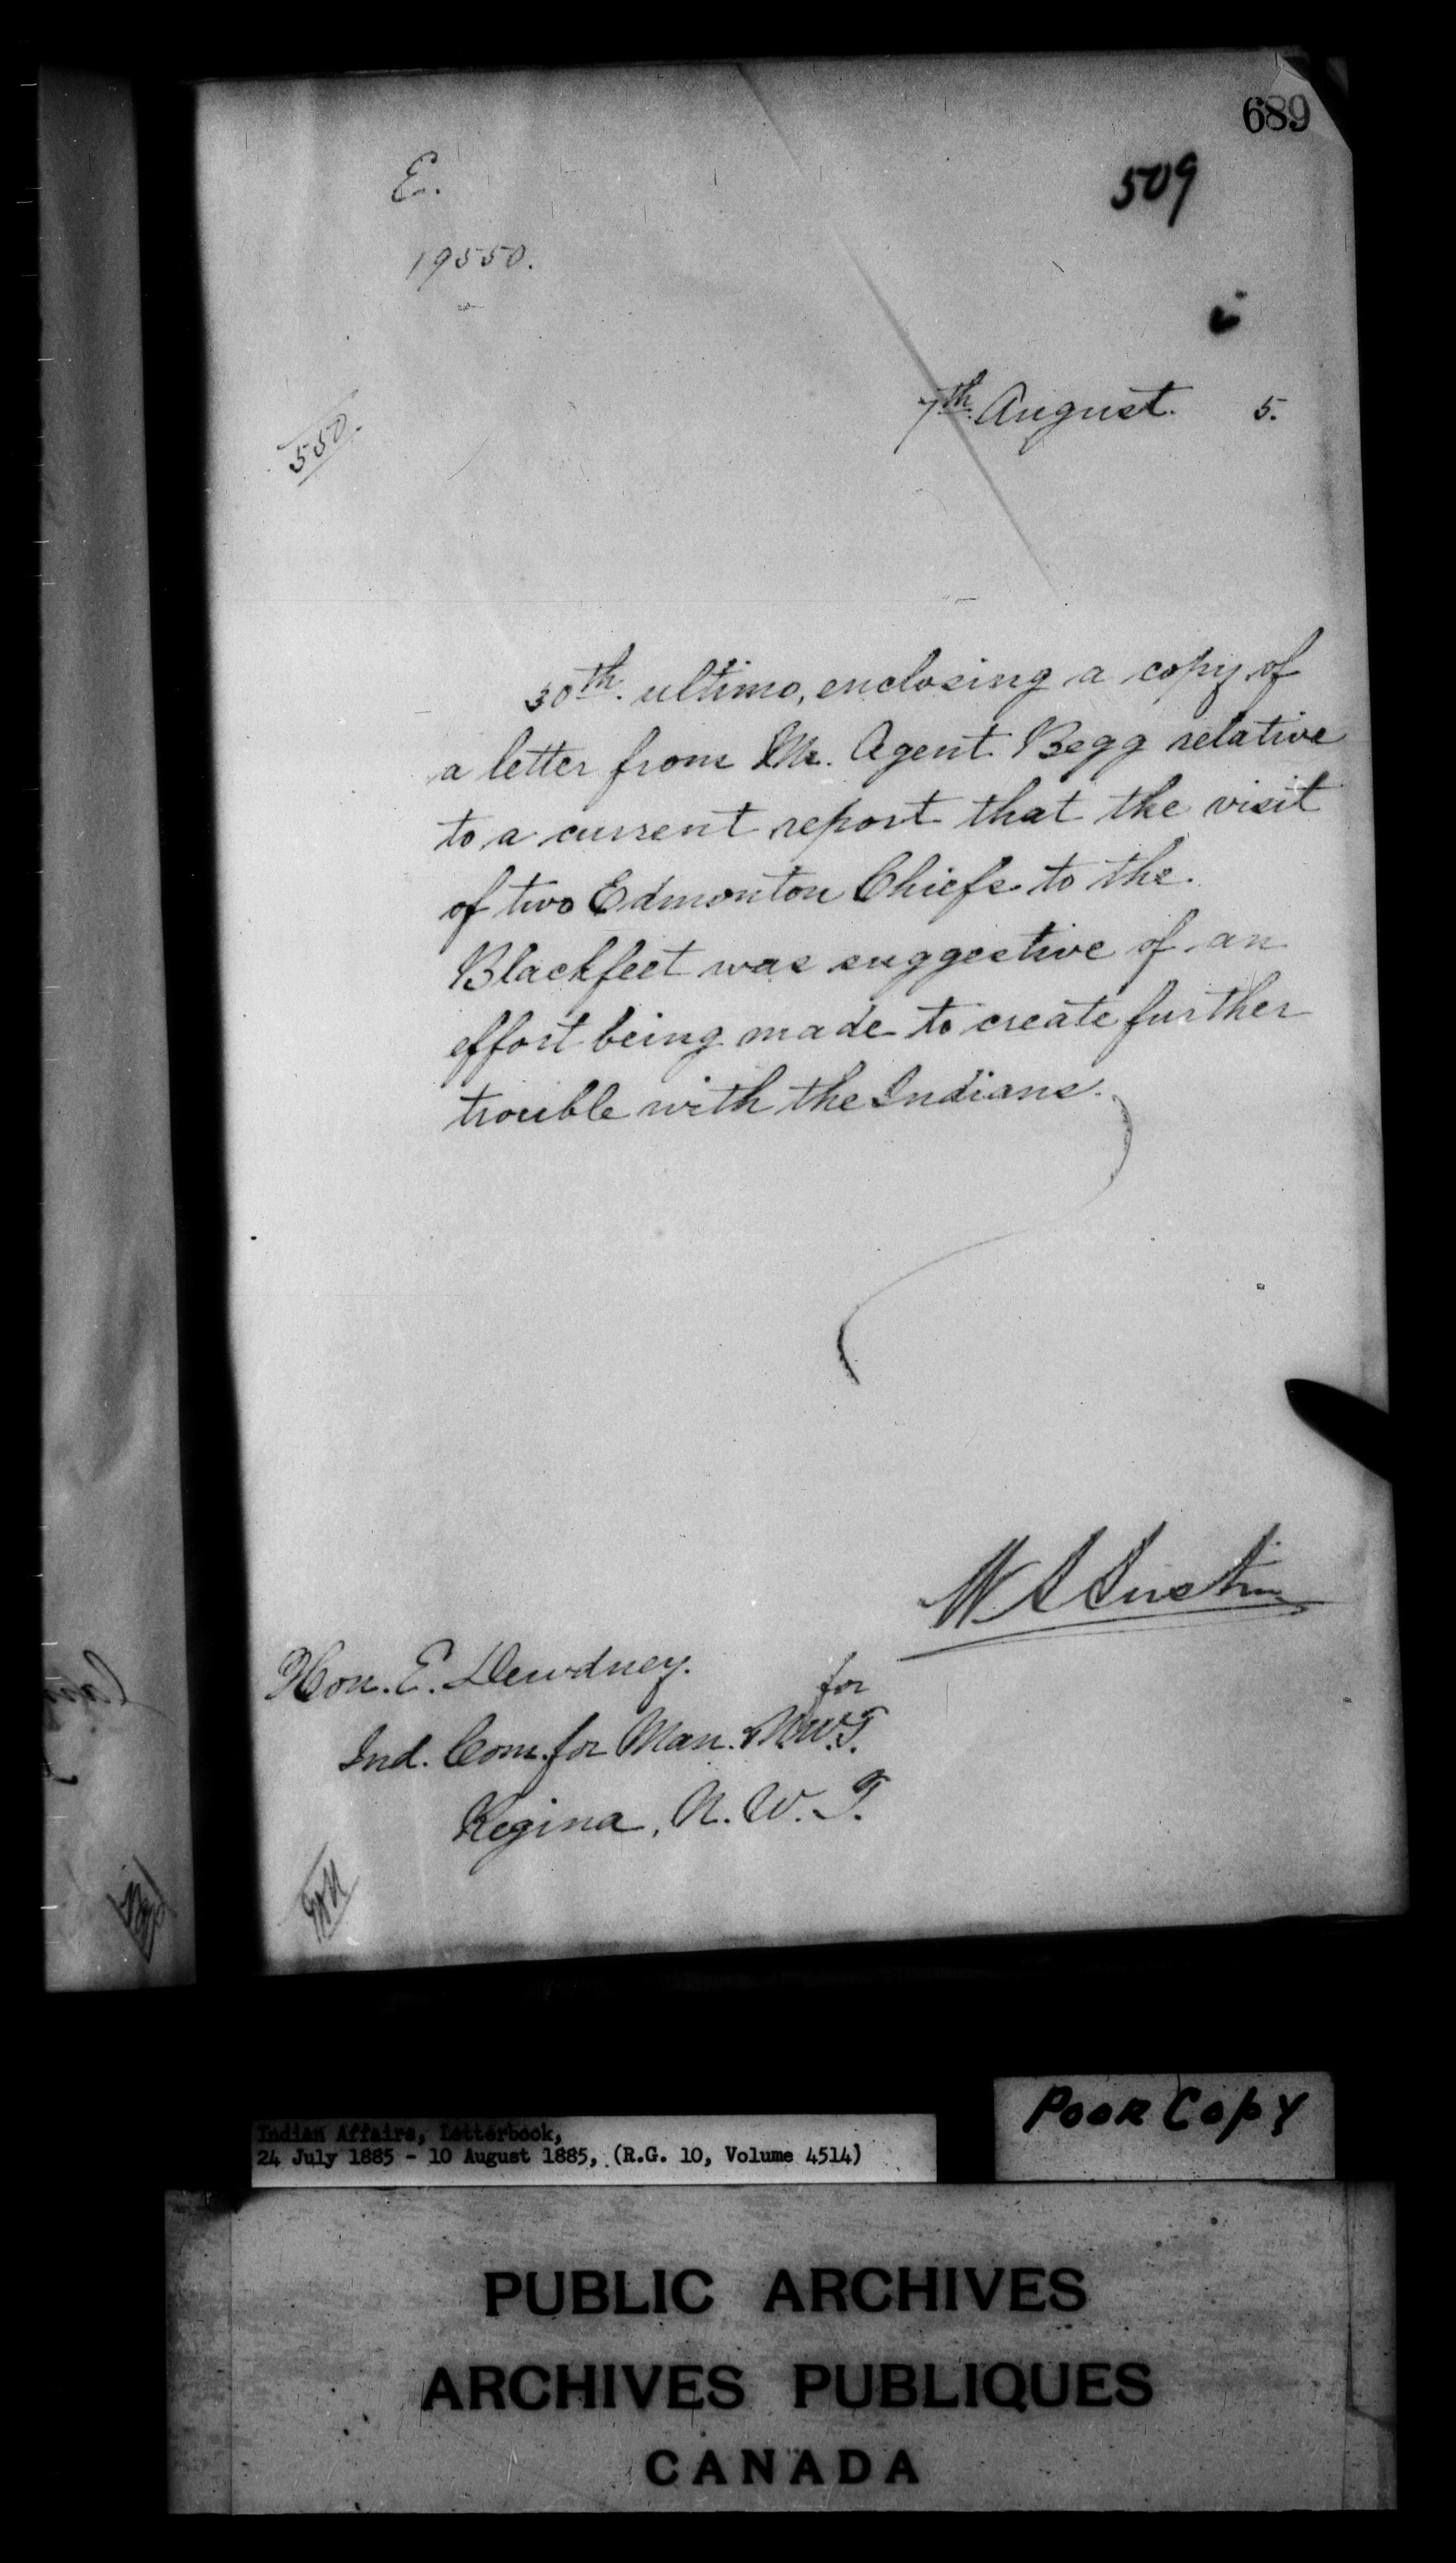 689
509
E.
19550.
7th. August. 5.
550.
30th. ultimo, enclosing a copy of
a letter from Mr. Agent Begg relative
to a current report that the visit
of two Edmonton Chiefs to the
Blackfeet was suggestive of an
effort being made to create further
trouble with the Indians.
W A Austin
for
Hon. E. Dewdney.
Ind. Com. for Man. & N.W.T.
Regina, N. W. T.
Poor Copy
Indian Affairs, Letterbook,
24 July 1885 - 10 August 1885, (R.G. 10, Volume 4514)
PUBLIC ARCHIVES
ARCHIVES PUBLIQUES
CANADA